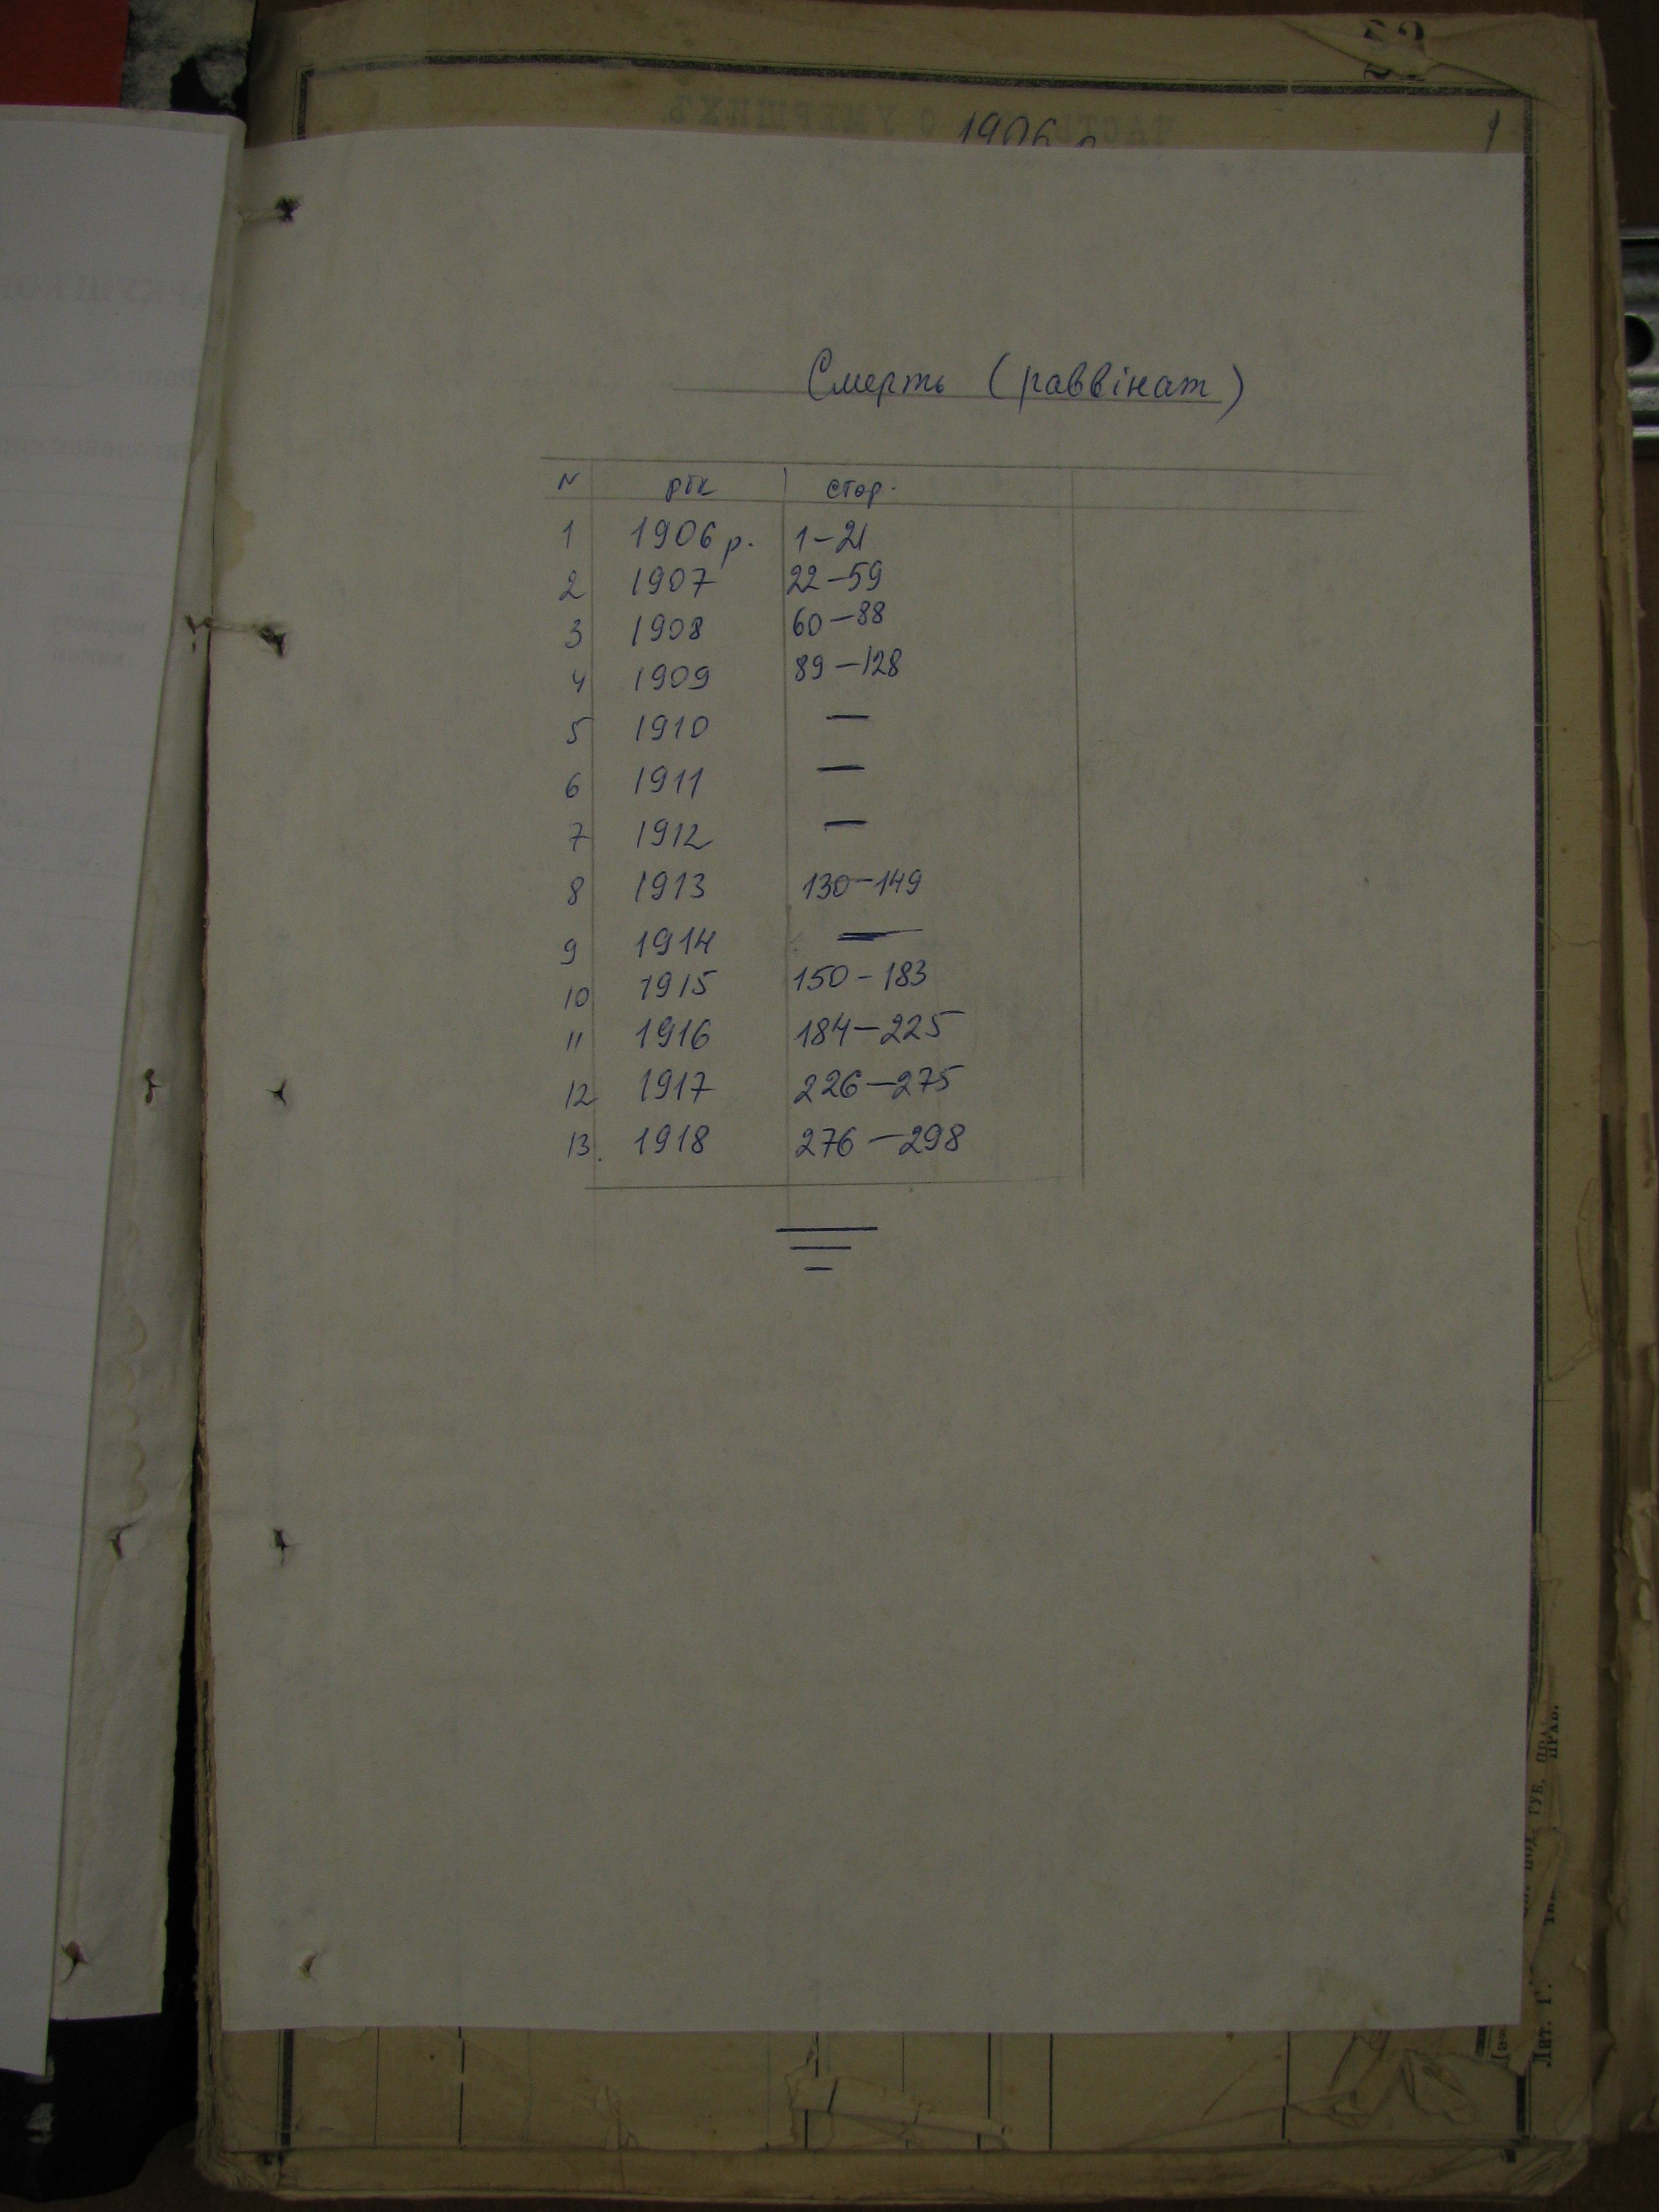 52
ЧАСТЬ О УМЕРШИХЪ.
1906 р
1
Смерть (раввінат)
N рік стор.
1 1906 р. 1-21
2 1907 22-59
3 1908 60-88
4 1909 89-128
5 1910 —
6 1911 —
7 1912 —
8 1913 130-149
9 1914 —
10 1915 150-183
11 1916 184-225
12 1917 226-275
13. 1918 276-298
ГУБ. ПРАВ.
Лит. Г.